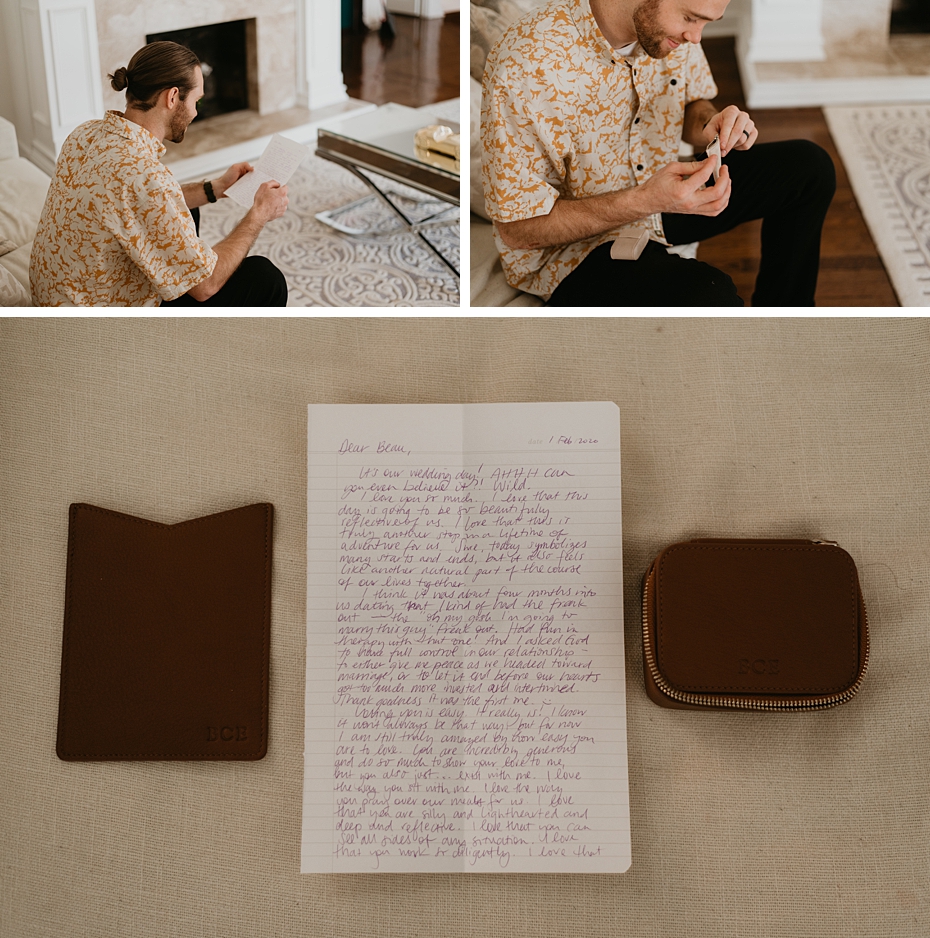 Date 1 Feb 2020
Dear Beau,
It's our wedding day! AHHH can
you even believe it?! Wild.
I love you so much. I love that this
day is going to be so beautifully
reflective of us. I love that this is
truly another stop in a lifetime of
adventure for us. Sure, today symbolizes
many starts and ends, but it also feels
like another natural part of the course
of our lives together.
I think it was about four months into
us dating that I kind of had the freak
out — the "oh my gosh I'm going to
marry this guy" freak out. Had fun in
therapy with that one! And I asked God
to have full control in our relationship —
to either give me peace as we headed toward
marriage, or to let it end before our hearts
got too much more invested and intertwined.
Thank goodness it was the first one.
Loving you is easy. It really is! I know
it won't always be that way, but for now
I am still truly amazed by how easy you
are to love. You are incredibly generous
and do so much to show your love to me,
but you also just... exist with me. I love
the way you sit with me. I love the way
you pray over our meals for us. I love
that you are silly and lighthearted and
deep and reflective. I love that you can
see all sides of any situation. I love
that you work so diligently. I love that
BCB
BCB